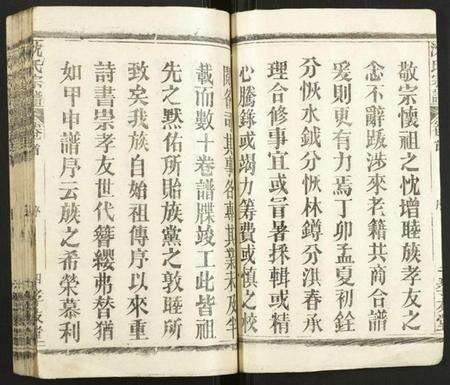 敬宗懷祖之忱增睦族孝友之
念不辭跋涉來老籍共商合譜
爰則更有力焉丁卯孟夏初銓
分恢水鉞分恢林鐏分淇春承
理合修事宜或冒暑採輯或精
心騰錄或竭力籌費或慎之校
載而數十卷譜牒竣工此皆祖
先之黙佑所貽族黨之敦睦所
致矣我族自始祖傳序以來重
詩書崇孝友世代簪纓弗替猶
如甲申譜序云族之希榮慕利